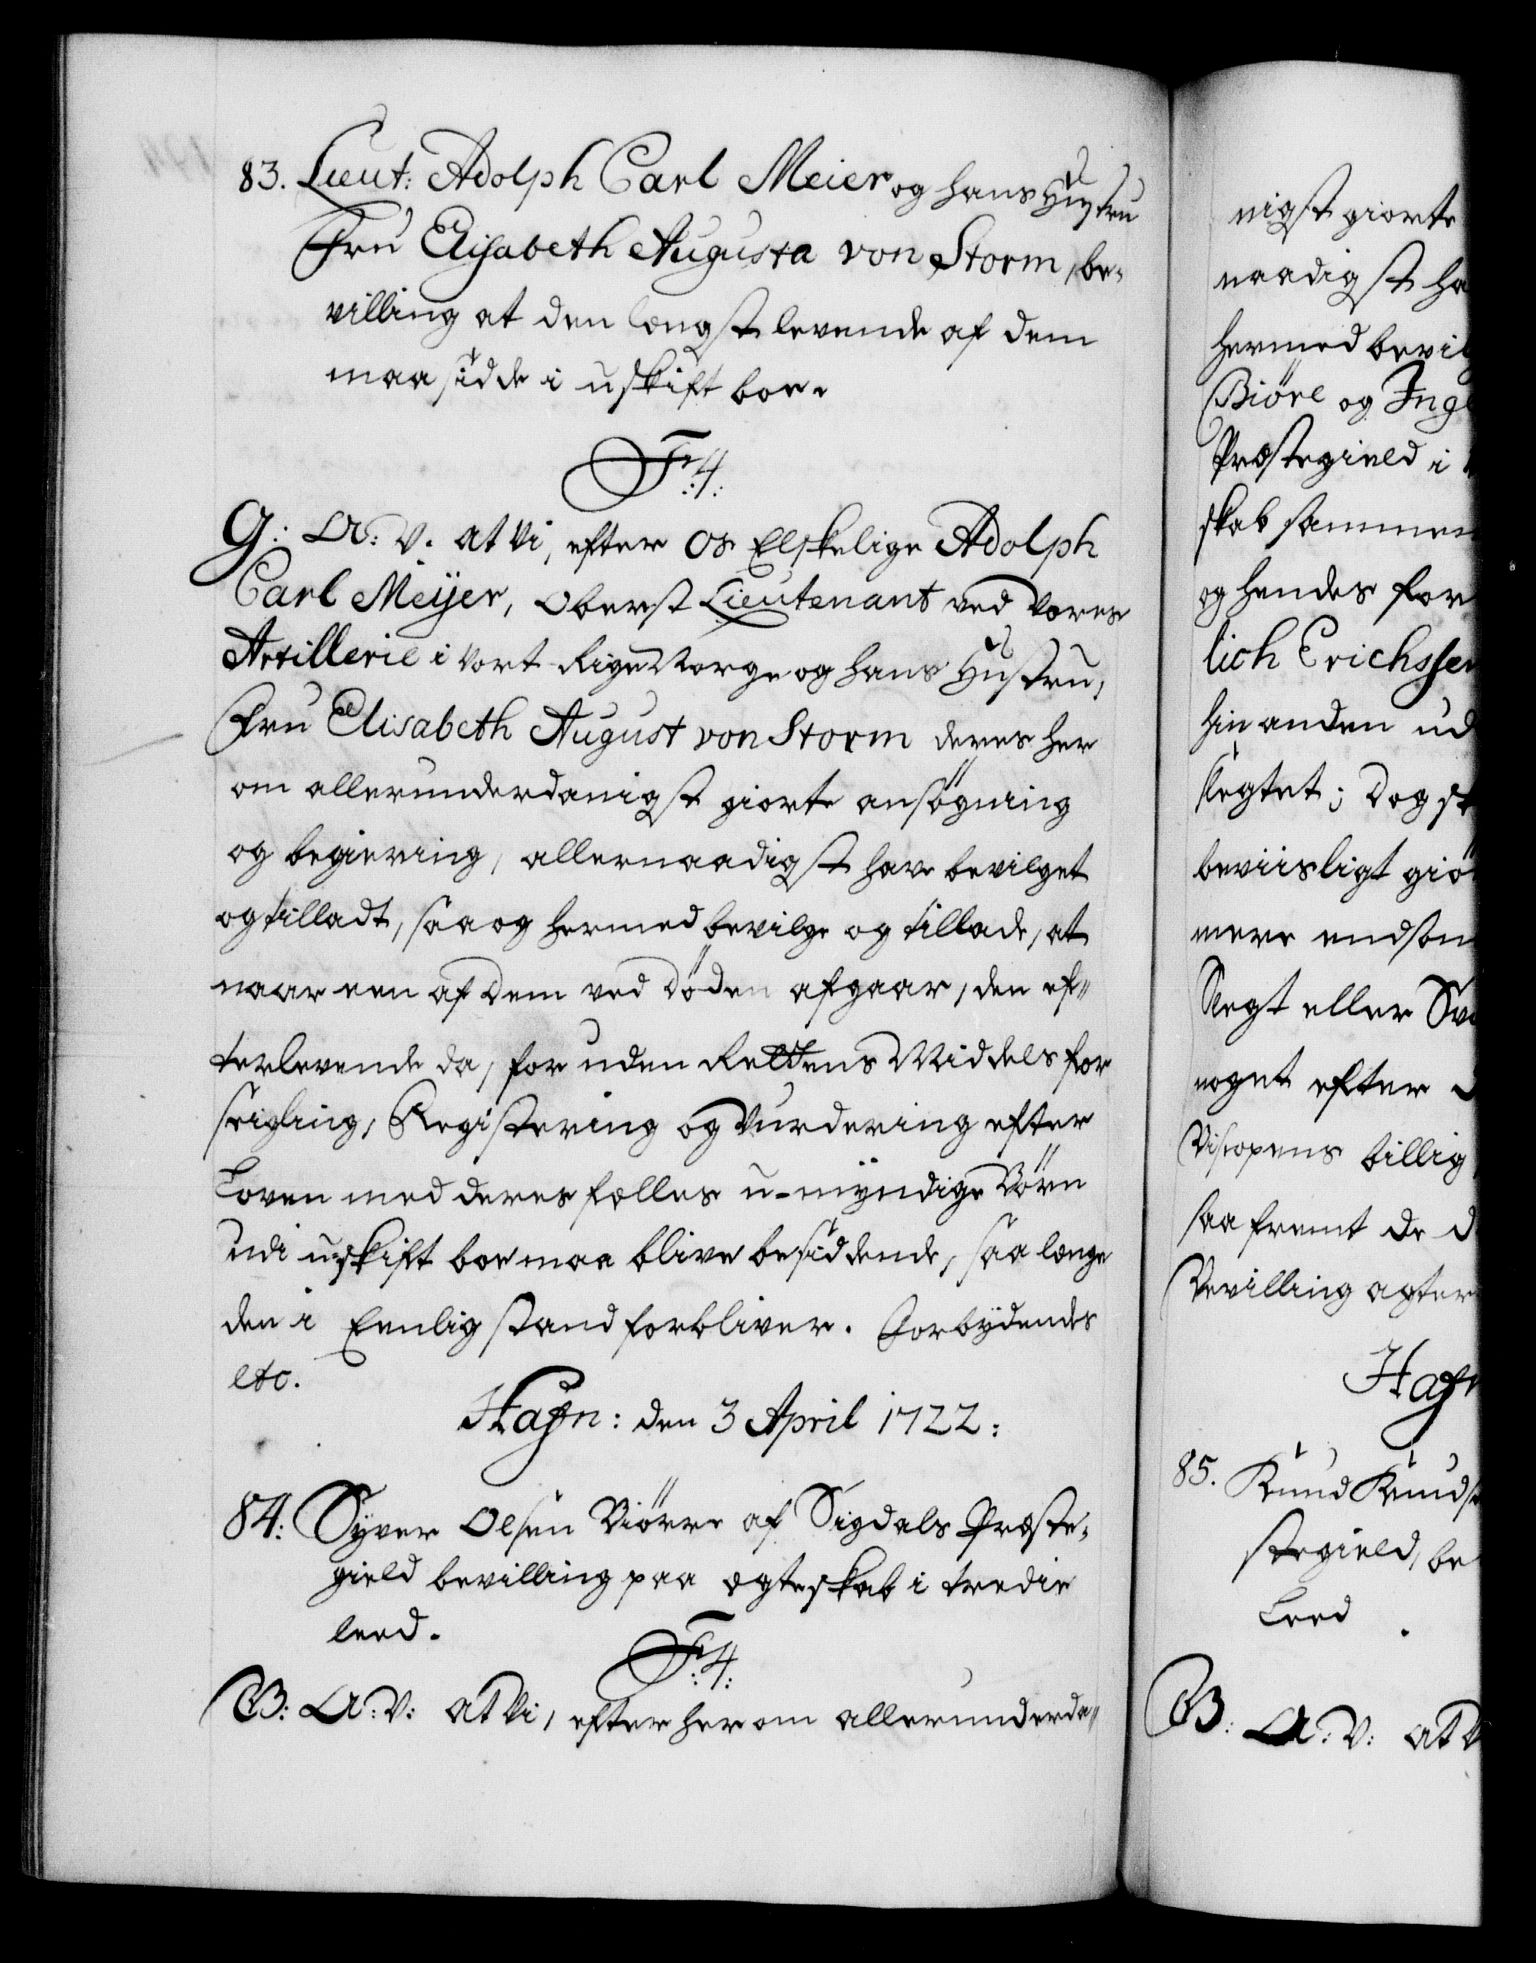 83. Lieut: Adolph Carl Meier og hans Hustru
Fru Elisabeth Augusta von Storm, be-
villing at den længst levende af dem
maa sidde i uskift boe.
F:4:
G: A: V. at Vi, efter Os Elskelige Adolph
Carl Meÿer, Oberst Lieutenant ved Vores
Artillerie i Vort Rige Norge og hans Hustru,
Fru Elisabeth August von Storm deres her
om allerunderdanigst giorte ansøgning
og begiering, allernaadigst have bevilget
og tilladt, saa og hermed bevilge og tillade, at
naar een af Dem ved Døden afgaar, den ef-
terlevende da, for uden Rettens Middels for
seigling, Registering og Vurdering efter
Loven med deres fælles u-mÿndige Børn
udi uskift boe maa blive besiddende, saa længe
den i Eenlig stand forbliver. Forbÿdendes
etc.
Hafn: den 3 April 1722:
84: Sÿver Olsen Biørre af Sigdals Præste-
gield bevilling paa ægteskab i tredie
leed.
F:4:
B: A: V: at Vi, efter her om allerunderda-
nigst giorte
naadigst ha
hermed bevil
Biöre og Inge
Præstegield i
skab sammen
og hendes for
lich Erichssen
hin anden ud
slegtet; Dog sk
beviisligt giö
mere endsom
Slegt eller Sv
noget efter
Biscopens billig
saa fremt de d
Bevilling agter
Hafn
85. Knud Knuds
stegield, be
Leed.
B: A: V: at V